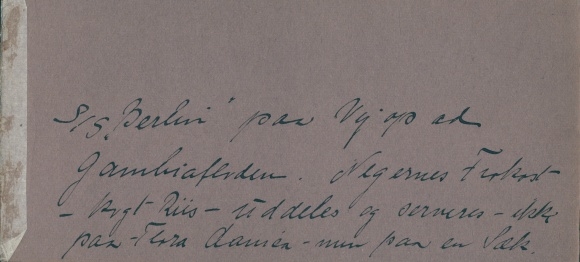 S/S „Berlin" paa Vej op ad
Gambiafloden. Negernes Frokost
- kogt Riis - uddeles og serveres - ikke
paa Flora Danica - men paa en Sæk.